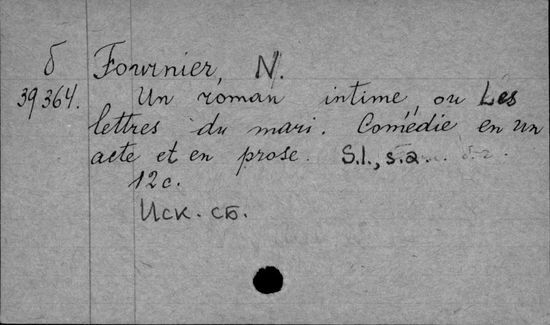 б Fournier, N.
39364. Un roman intime, ou Les
lettres du mari. Comédie en un
acte et en prose. S.l., s.a.
12c.
Иск. сб.